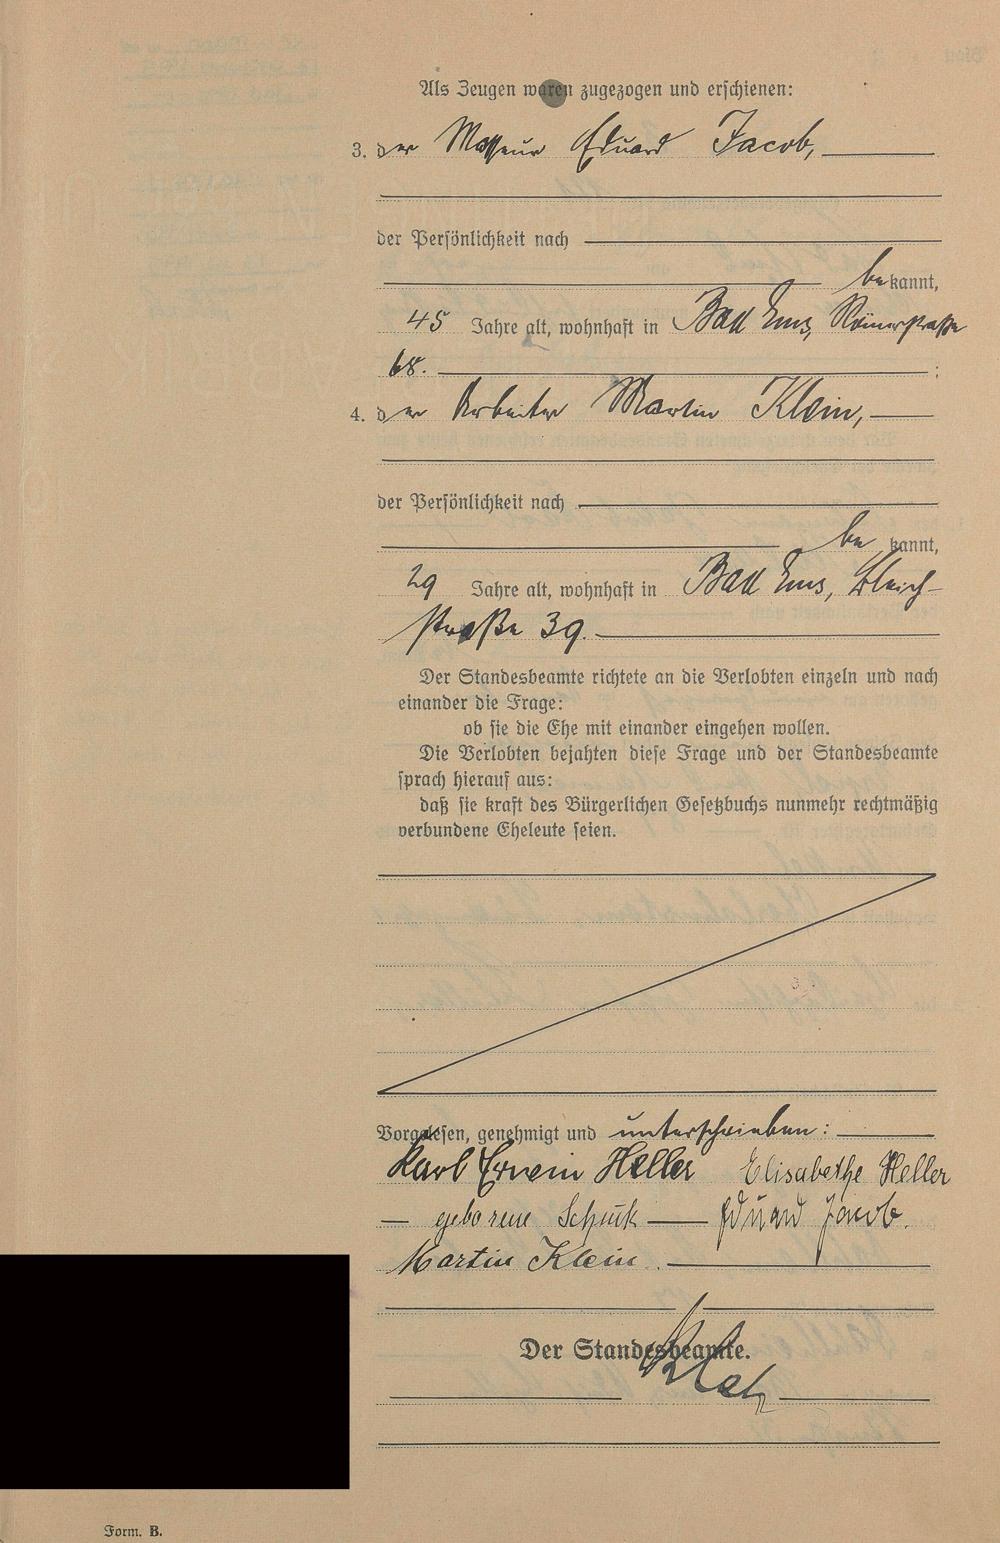 Als Zeugen waren zugezogen und erschienen:
3. der Masseur Eduard Jacob,
der Persönlichkeit nach
bekannt,
45 Jahre alt, wohnhaft in Bad Ems, Römerstraße
68.;
4. der Arbeiter Martin Klein,
der Persönlichkeit nach
bekannt,
29 Jahre alt, wohnhaft in Bad Ems, Bleich-
straße 39.
Der Standesbeamte richtete an die Verlobten einzeln und nach
einander die Frage:
ob sie die Ehe mit einander eingehen wollen.
Die Verlobten bejahten diese Frage und der Standesbeamte
sprach hierauf aus:
daß sie kraft des Bürgerlichen Gesetzbuchs nunmehr rechtmäßig
verbundene Eheleute seien.
Vorgelesen, genehmigt und unterschrieben:
Karl Erwein Heller Elisabethe Heller
geborene Schuk Eduard Jacob.
Martin Klein.
Der Standesbeamte.
Form. B.